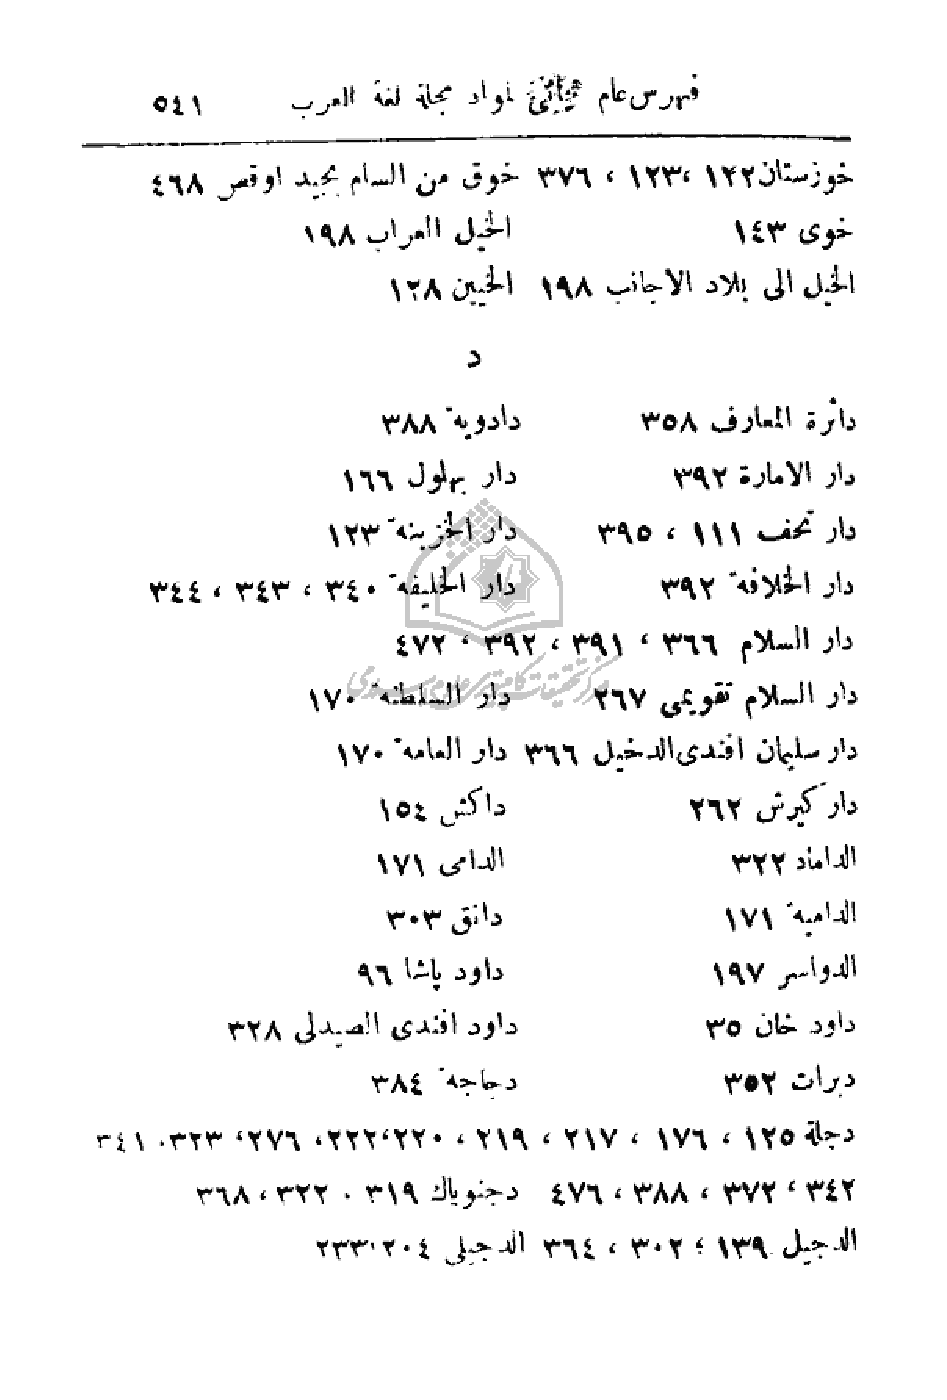 فهرس عام هجائي لمواد مجلة لغة العرب ٥٤١
خوزستان ١٢٢ ،١٢٣ ، ٣٧٦ خوق من السام بجيد اوقص ٤٦٨
خوى ١٤٣ الخيل العراب ١٩٨
الخيل الى بلاد الاجانب ١٩٨ الخيين ١٢٨
د
دائرة المعارف ٣٥٨ دادوية ٣٨٨
دار الامارة ٣٩٢ دار بهلول ١٦٦
دار تحف ١١١ ، ٣٩٥ دار الخزينة ١٢٣
دار الخلافة ٣٩٢ دار الخليفة ٣٤٠ ، ٣٤٣ ، ٣٤٤
دار السلام ٣٦٦ ، ٣٩١ ، ٣٩٢ ، ٤٧٢
دار السلام تقويمى ٢٦٧ دار السلطنة ١٧٠
دار سليمان افندى الدخيل ٣٦٦ دار العامة ١٧٠
دار كيرش ٢٦٢ داكش ١٥٤
الداماد ٣٢٢ الدامى ١٧١
الدامية ١٧١ دانق ٣٠٣
الدواسر ١٩٧ داود پاشا ٩٦
داود خان ٣٥ داود افندى الصيدلى ٣٢٨
دبرات ٣٥٢ دجاجة ٣٨٤
دجلة ١٢٥ ، ١٧٦ ، ٢١٧ ، ٢١٩ ، ٢٢٠،٢٢٢ ،٢٧٦ ،٣٢٣ .٣٤١
٣٤٢ ، ٣٧٢ ، ٣٨٨ ، ٤٧٦ دجنوياك ٣١٩ . ٣٢٢ ، ٣٦٨
الدجيل ١٣٩ ؛ ٣٠٢ ، ٣٦٤ الدجيلي ٢٠٤،٢٣٣